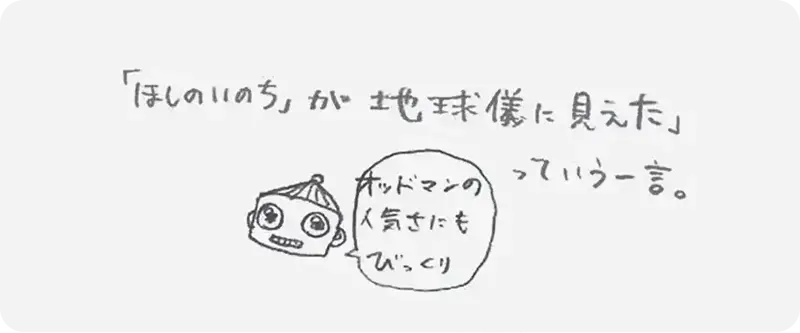 「ほしのいのち」が地球儀に見えた」
っていう一言。
オッドマンの
人気さにも
びっくり